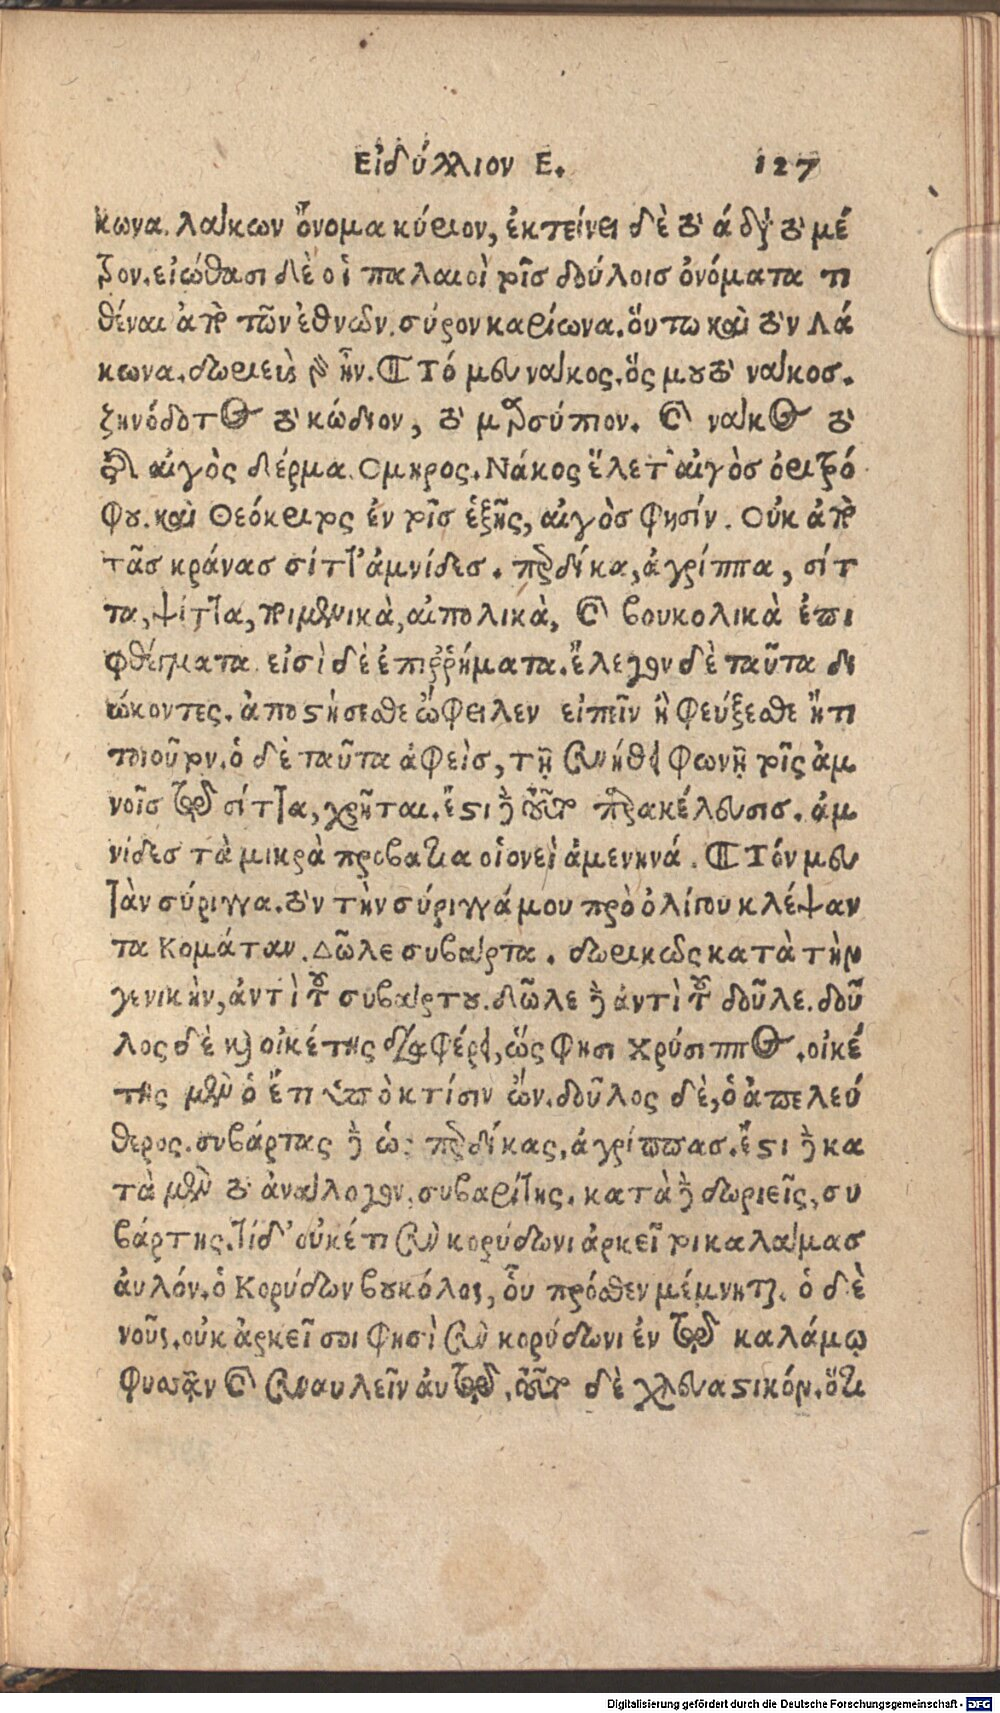 Εἰδύλλιον Ε. 127
κωνα. λάκων ὄνομα κύριον, ἐκτείνει δὲ τὸ ά διὰ τὸ μέ
τρον. εἰώθασι δὲ οἱ παλαιοὶ τοῖσ δούλοισ ὀνόματα τι
θέναι ἀπὸ τῶν ἐθνῶν. σύρον καρίωνα. ὅυτω καὶ τὸν Λά
κωνα. δωριεὺς γὰρ ἦν. ¶ Τό μευ νάκος. ὅς μου τὸ νάκοσ.
ζηνόδοτος τὸ κώδιον, τὸ μαρσύπιον. καὶ νάκος τὸ
τοῦ αἰγὸς δέρμα. Ομηρος. Νάκος ἕλετ' αἰγὸσ ὀριτρό
φου. καὶ Θεόκριτος ἐν τοῖσ ἑξῆς, αἰγὸσ φησίν. Οὐκ ἀπὸ
τᾶσ κράνασ σίττ' ἀμνίδεσ. προδίκα, ἀγρίππα, σίτ
τα, ψίττα, ποιμενικὰ, αἰπολικὰ, καὶ βουκολικὰ ἐπι
φθέγματα εἰσὶ δὲ ἐπιῤῥήματα. ἔλεγον δὲ ταῦτα δι
ώκοντες. ἀποστήσεσθε ὤφειλεν εἰπεῖν ἢ φεύξεσθε ἤ τι
τοιοῦτον. ὁ δὲ ταῦτα ἀφεὶς, τῇ συνήθει φωνῇ τοῖς ἀμ
νοῖς τῷ σίττα, χρῆται. ἔστι δὲ τοῦτο παρακέλευσισ. ἀμ
νίδεσ τὰ μικρὰ πρόβατια οἱονεὶ ἀμενηνά. ¶ Τόν μευ
τὰν σύριγγα. τὸν τὴν σύριγγά μου πρὸ ὀλίγου κλέψαν
τα Κομάταν. Δῶλε συβάρτα. δωρικῶς κατὰ τὴν
γενικὴν, ἀντὶ τοῦ συβάρτου. δῶλε δὲ ἀντὶ τοῦ δοῦλε. δοῦ
λος δὲ καὶ οἰκέτης διαφέρει, ὥς φησι Χρύσιππος. οἰκέ
της μὲν ὁ ἔτι ὑπὸ κτίσιν ὤν. δοῦλος δὲ, ὁ ἀπελεύ
θερος. συβάρτας δὲ ὡς προδίκας, ἀγρίππασ. ἔστι δὲ κα
τὰ μὲν τὸ ἀνάλογον, συβαρίτης. κατὰ δὲ δωριεῖς, συ
βάρτης. Τί δ' οὐκέτι σὺν κορύδωνι ἀρκεῖ τοι καλάμασ
ἀυλόν. ὁ Κορύδων βουκόλος, οὗ πρόσθεν μέμνηται. ὁ δὲ
νοῦς. οὐκ ἀρκεῖ σοι φησὶ σὺν κορύδωνι ἐν τῷ καλάμῳ
φυσᾷν καὶ συναυλεῖν ἀυτῷ. τοῦτο δὲ χλευαστικόν. ὅτι
Digitalisierung gefördert durch die Deutsche Forschungsgemeinschaft - DFG